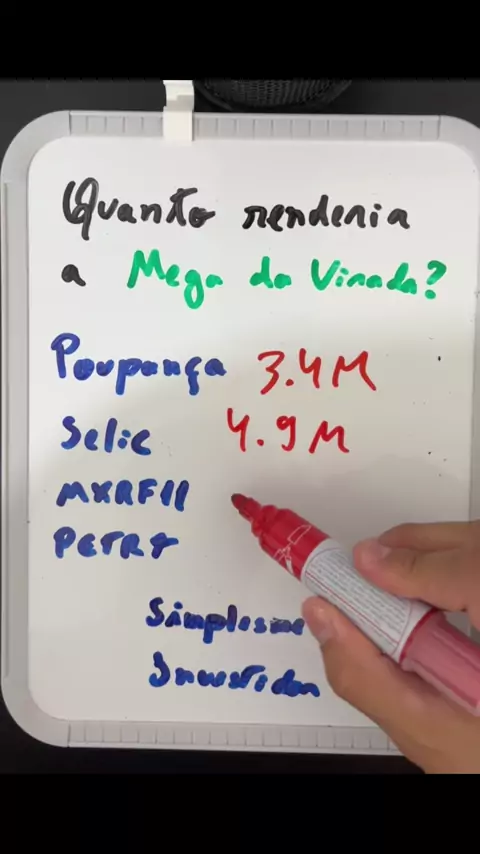 Quanto renderia
a Mega da Virada?
Poupança 3.4M
Selic 4.9M
MXRF11
PETR4
Simplesme
Investidor